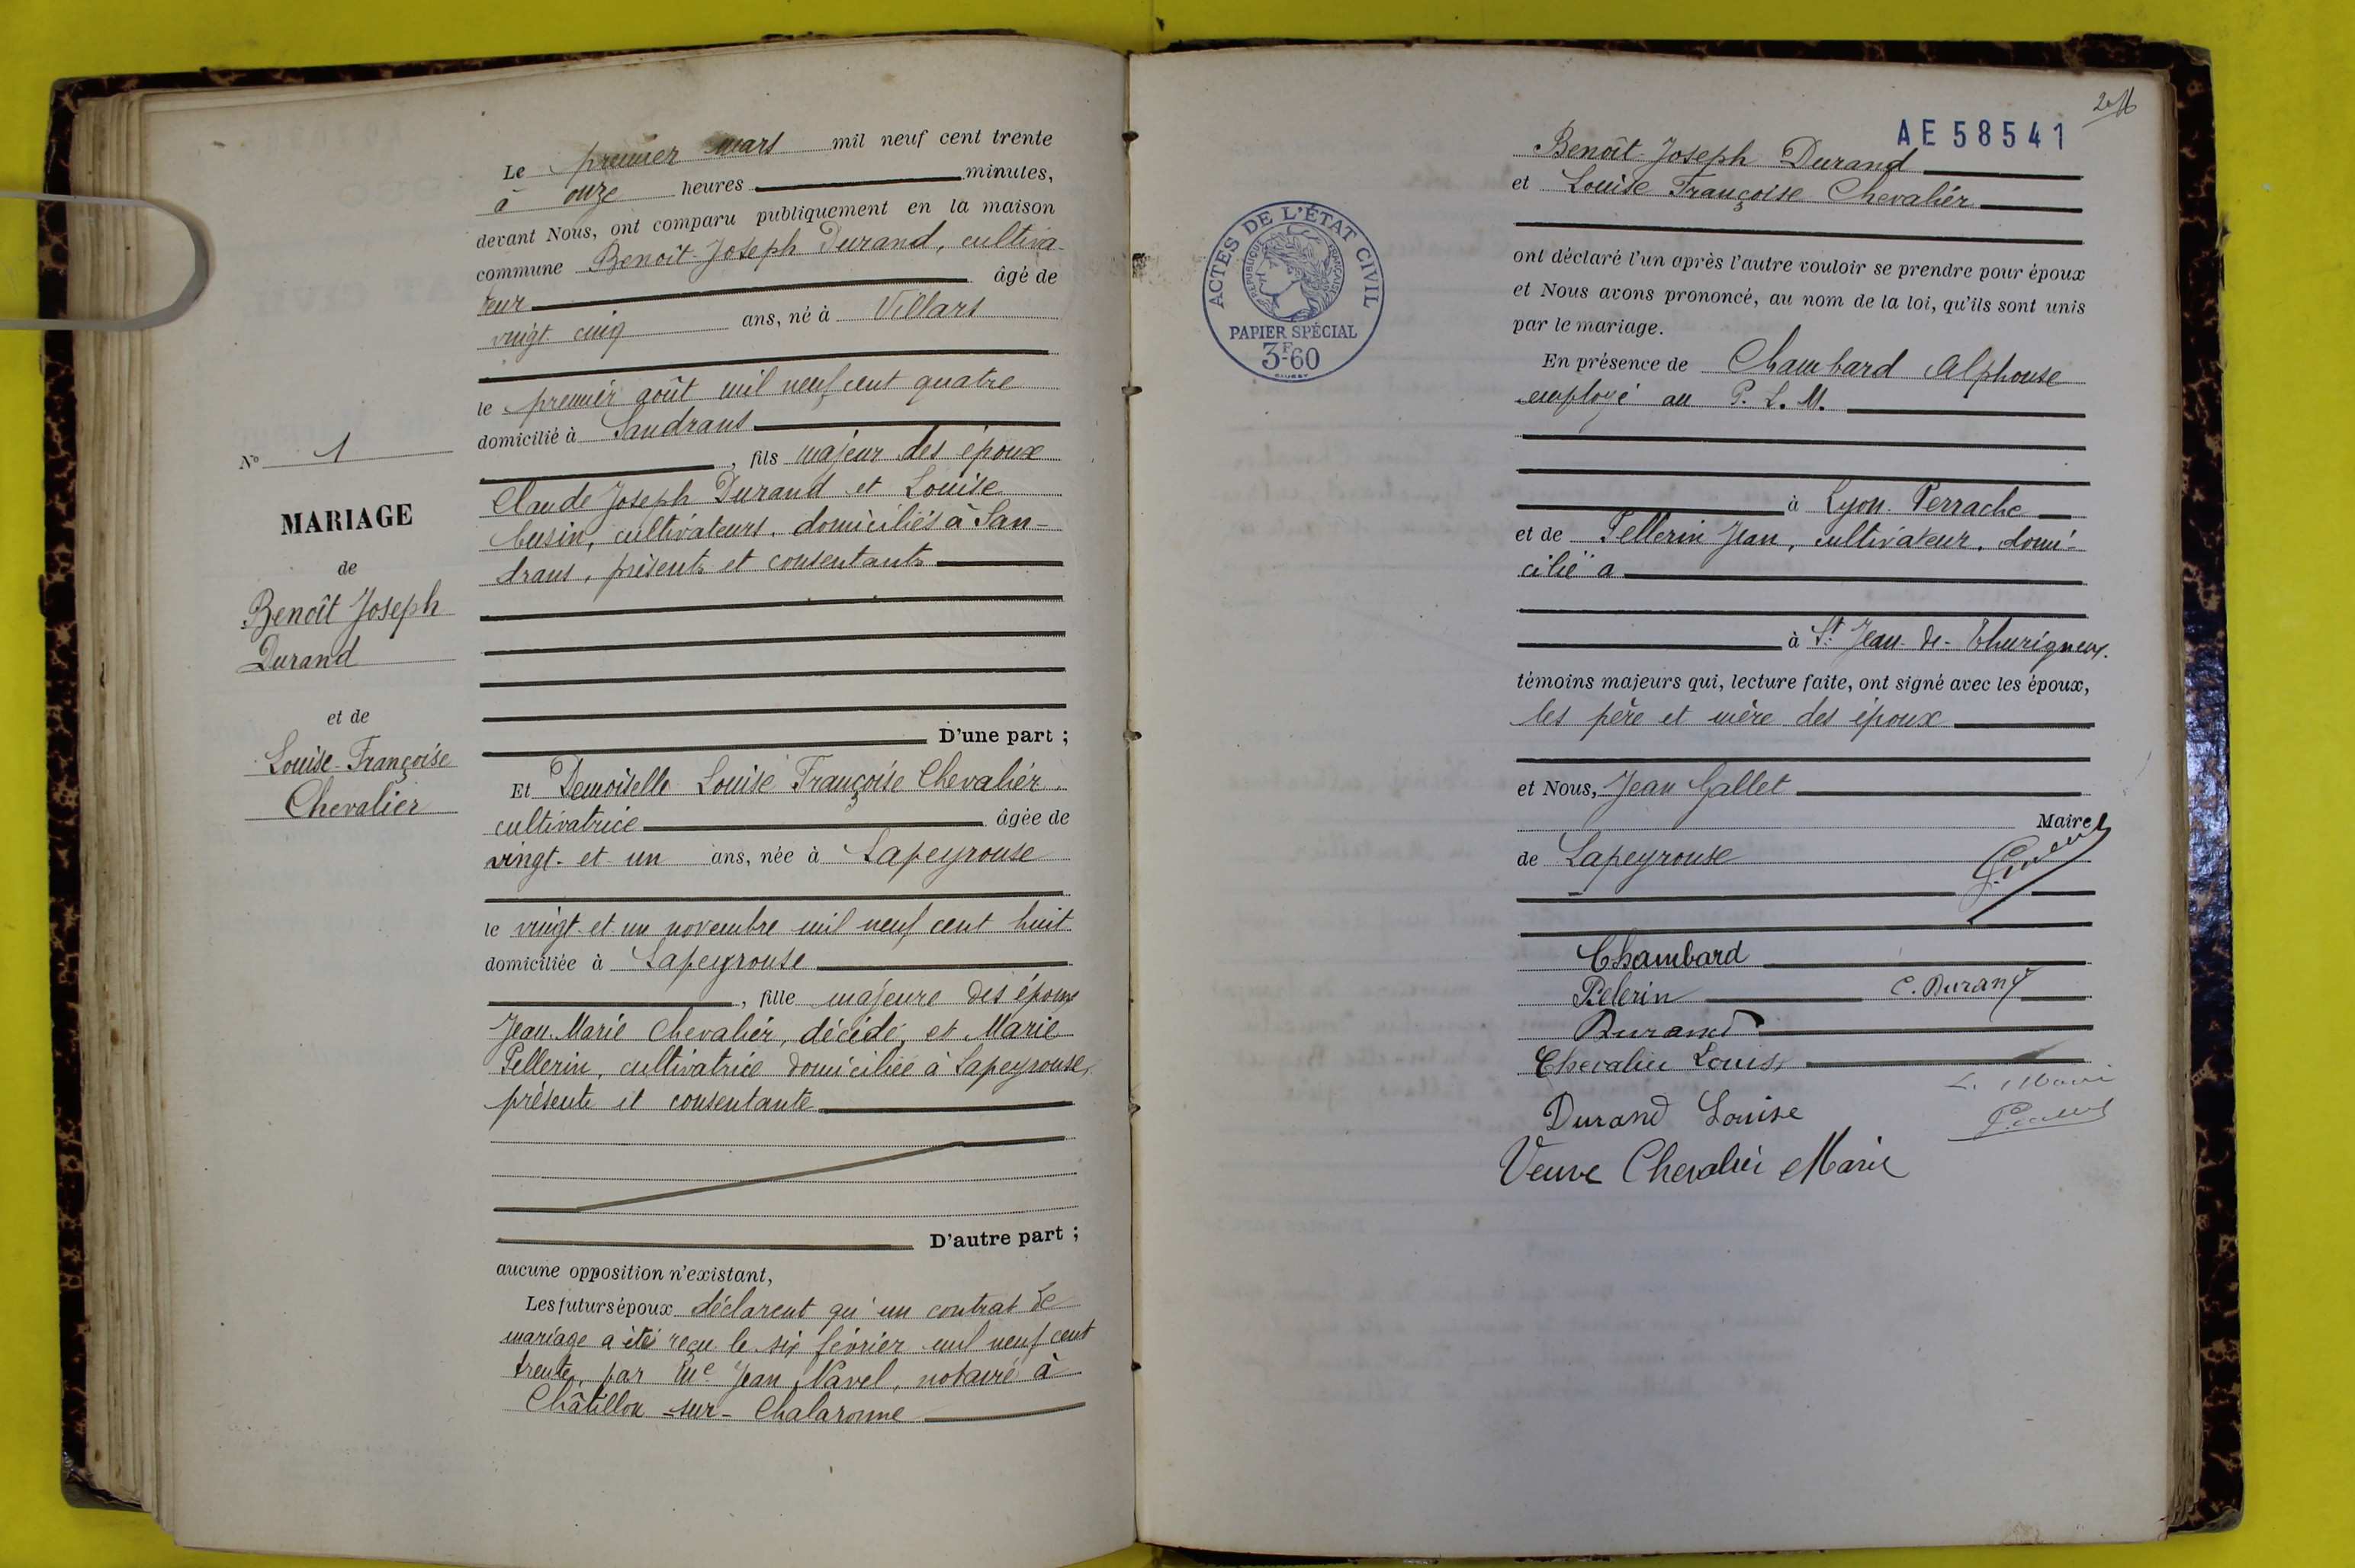 Le premier mars mil neuf cent trente
à onze heures minutes,
devant Nous, ont comparu publiquement en la maison
commune Benoît-Joseph Durand, cultiva-
teur âgé de
vingt-cinq ans, né à Villars
le premier août mil neuf cent quatre
domicilié à Sandrans
, fils majeur des époux
Claude Joseph Durand et Louise
busin, cultivateurs, domiciliés à San-
drans, présents et consentants
D'une part ;
Et Demoiselle Louise Françoise Chevalier,
cultivatrice âgée de
vingt-et-un ans, née à Lapeyrouse
le vingt-et-un novembre mil neuf cent huit
domiciliée à Lapeyrouse
, fille majeure des époux
Jean-Marie Chevalier, décédé, et Marie
Pellerin, cultivatrice domiciliée à Lapeyrouse,
présente et consentante
D'autre part ;
aucune opposition n'existant,
Les futurs époux déclarent qu'un contrat de
mariage a été reçu le six février mil neuf cent
trente, par Me Jean Navel, notaire à
Châtillon-sur-Chalaronne
No 1
MARIAGE
de
Benoît Joseph
Durand
et de
Louise-Françoise
Chevalier
AE 58541
Benoît-Joseph Durand
et Louise Françoise Chevalier
ont déclaré l'un après l'autre vouloir se prendre pour époux
et Nous avons prononcé, au nom de la loi, qu'ils sont unis
par le mariage.
En présence de Chambard Alphonse
employé au P. L. M.
à Lyon-Perrache
et de Pellerin Jean, cultivateur, domi-
cilié à
à St Jean-de-Thurigneux.
témoins majeurs qui, lecture faite, ont signé avec les époux,
les père et mère des époux
et Nous, Jean Gallet
Maire
de Lapeyrouse
Chambard
Pelerin C. Durand
Durand
Chevalier Louise
Durand Louise
Veuve Chevalier Marie
ACTES DE L'ÉTAT CIVIL
RÉPUBLIQUE FRANÇAISE
PAPIER SPÉCIAL
3F60